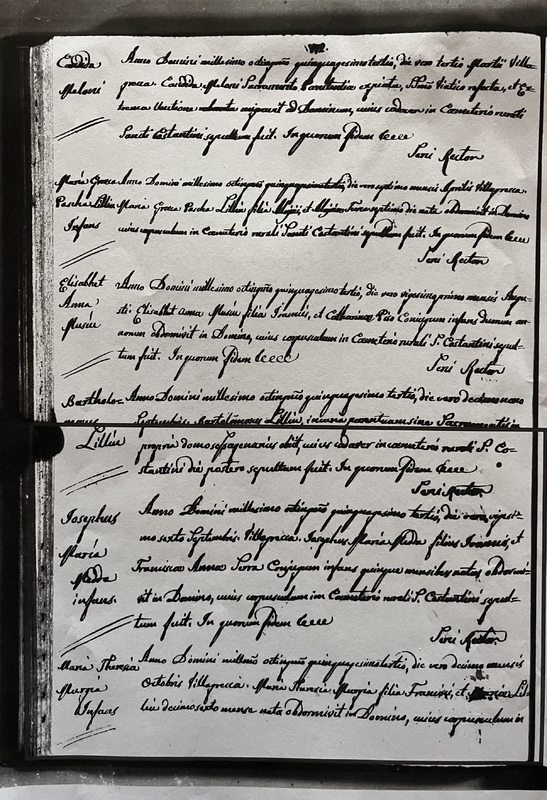 Candida
Meloni
Anno Domini millesimo octingmo quinquagesimo tertio, die vero tertio Martii Villa-
grecca Candida Meloni Sacramento Poenitentiae expiata, SSmo Viatico refecta, et Ex-
trema Unctione roborata migravit ad Dominum, cuius cadaver in Cœmeterio rurali
Sancti Costantini sepultum fuit. In quorum fidem
Seni Rector
Maria Greca
Pascha Lilliu
Infans
Anno Domini millesimo octingmo quinquagesimo tertio, die vero septimo mensis Aprilis Villagrecca
Maria Greca Pascha Lilliu filia et septimo die nata obdormivit in Domino
cuius corpusculum in cœmeterio rurali Sancti Costantini sepultum fuit. In quorum fidem
Seni Rector
Elisabhet
Anna
Musiu
Anno Domini millesimo octingmo quinquagesimo tertio, die vero vigesimo primo mensis Augu-
sti Elisabhet Anna Musiu filia et Catharinae Pès Conjugum infans duorum an-
norum obdormivit in Domino, cuius corpusculum in Cœmeterio rurali S. Costantini sepul-
tum fuit. In quorum fidem
Seni Rector
Bartholo-
meus
Lilliu
Anno Domini millesimo octingmo quinquagesimo tertio, die vero decimo nono
Septembris Bartolomeus Lilliu, sine Sacramentis in
propria domo sexagenarius obiit, cuius cadaver in cœmeterio rurali S. Co-
stantini die postero sepultum fuit. In quorum fidem
Seni Rector
Iosephus
Maria
Medda
infans.
Anno Domini millesimo octingmo quinquagesimo tertio, die vero vigesi-
mo sexto Septembris Villagrecca Iosephus Maria Medda filius Ioannis, et
Francisca Annae Serra Conjugum infans quinque mensibus natus obdormi-
vit in Domino, cuius corpusculum in Cœmeterio rurali S. Costantini sepul-
tum fuit. In quorum fidem
Seni Rector
Maria Theresia
Murgia
Infans
Anno Domini millmo octingmo quinquagesimo tertio, die vero decimo mensis
Octobris Villagrecca Maria Theresia Murgia filia Francisci, et Maria Lil-
liu decimo sexto mense nata obdormivit in Domino, cuius corpusculum in